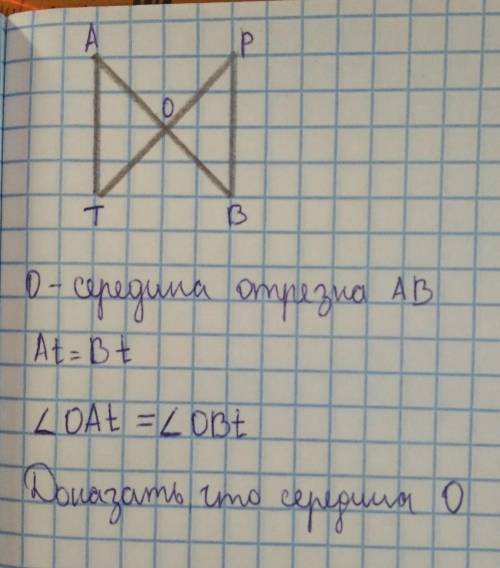 A P
O
T B
O - середина отрезка AB
At = Bt
∠OAt = ∠OBt
Доказать что середина O